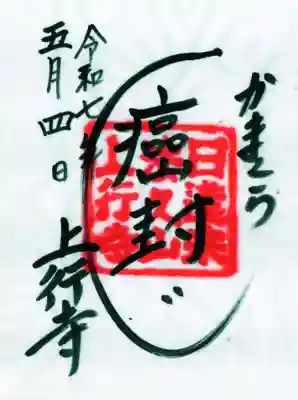 かまくら
癌封じ
上行寺
令和七年
五月四日
日蓮宗
上行寺